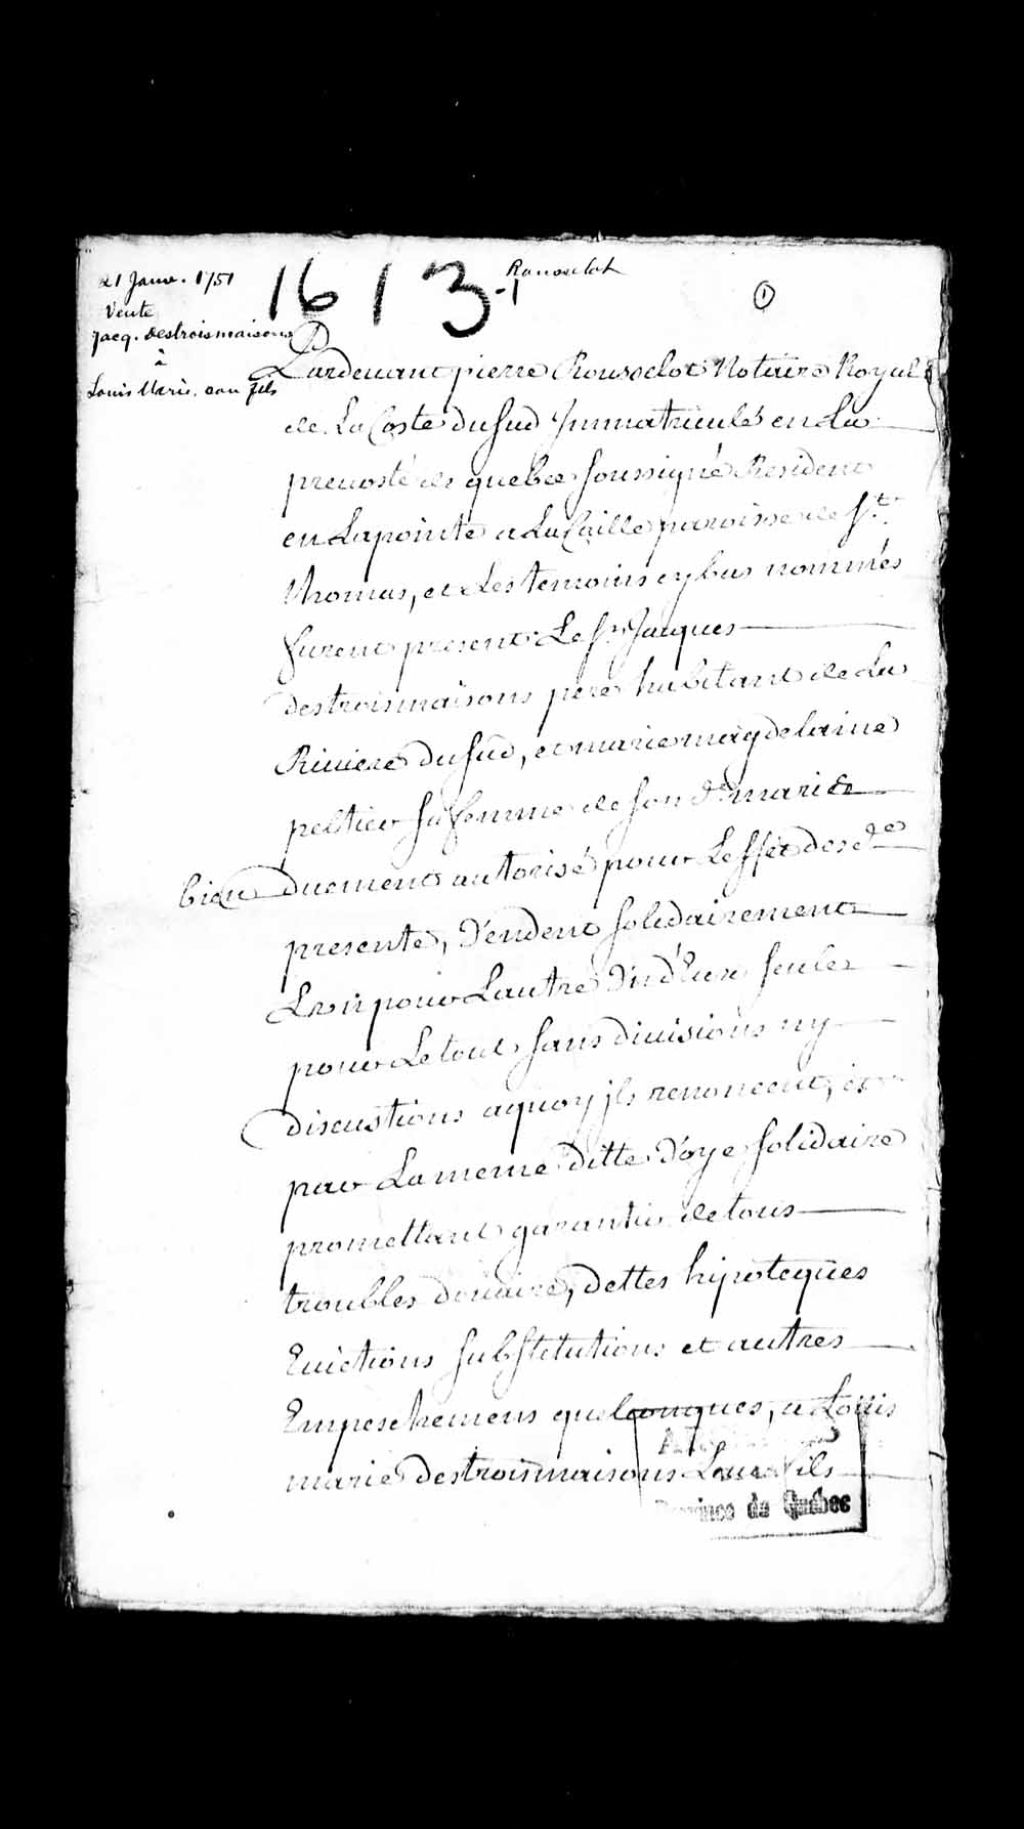 21 Janv. 1751
Vente
Jacq. Destroismaisons
à
Louis Marie, son fils
1613
-1
Rousselot
1
Pardevant pierre Rousselot Notaire Royal
de La Coste du Sud Immatriculé en La
prevosté de quebec soussigné Resident
en Lapointe a La Caille paroisse de St.
Thomas, et Les temoins cy bas nommés
furent present Le Sr. Jacques
Destroismaisons pere habitant de La
Riviere du Sud, et marie magdelaine
peltier sa femme de son dt. mari
bien Duement autorisé pour Leffet des dte
presente, Vendent solidairement
L'un pour Lautre Un d'Eux seul
pour Le tout sans divisions ny
Discustions aquoy jls renoncent, et
par La meme ditte Voye solidaire
promettant garantir de tous
troubles douaire, dettes hipoteques
Evictions substitutions et autres
Empeschemens quelconques, a Louis
marie Destroismaisons Leur fils
Province de Québec